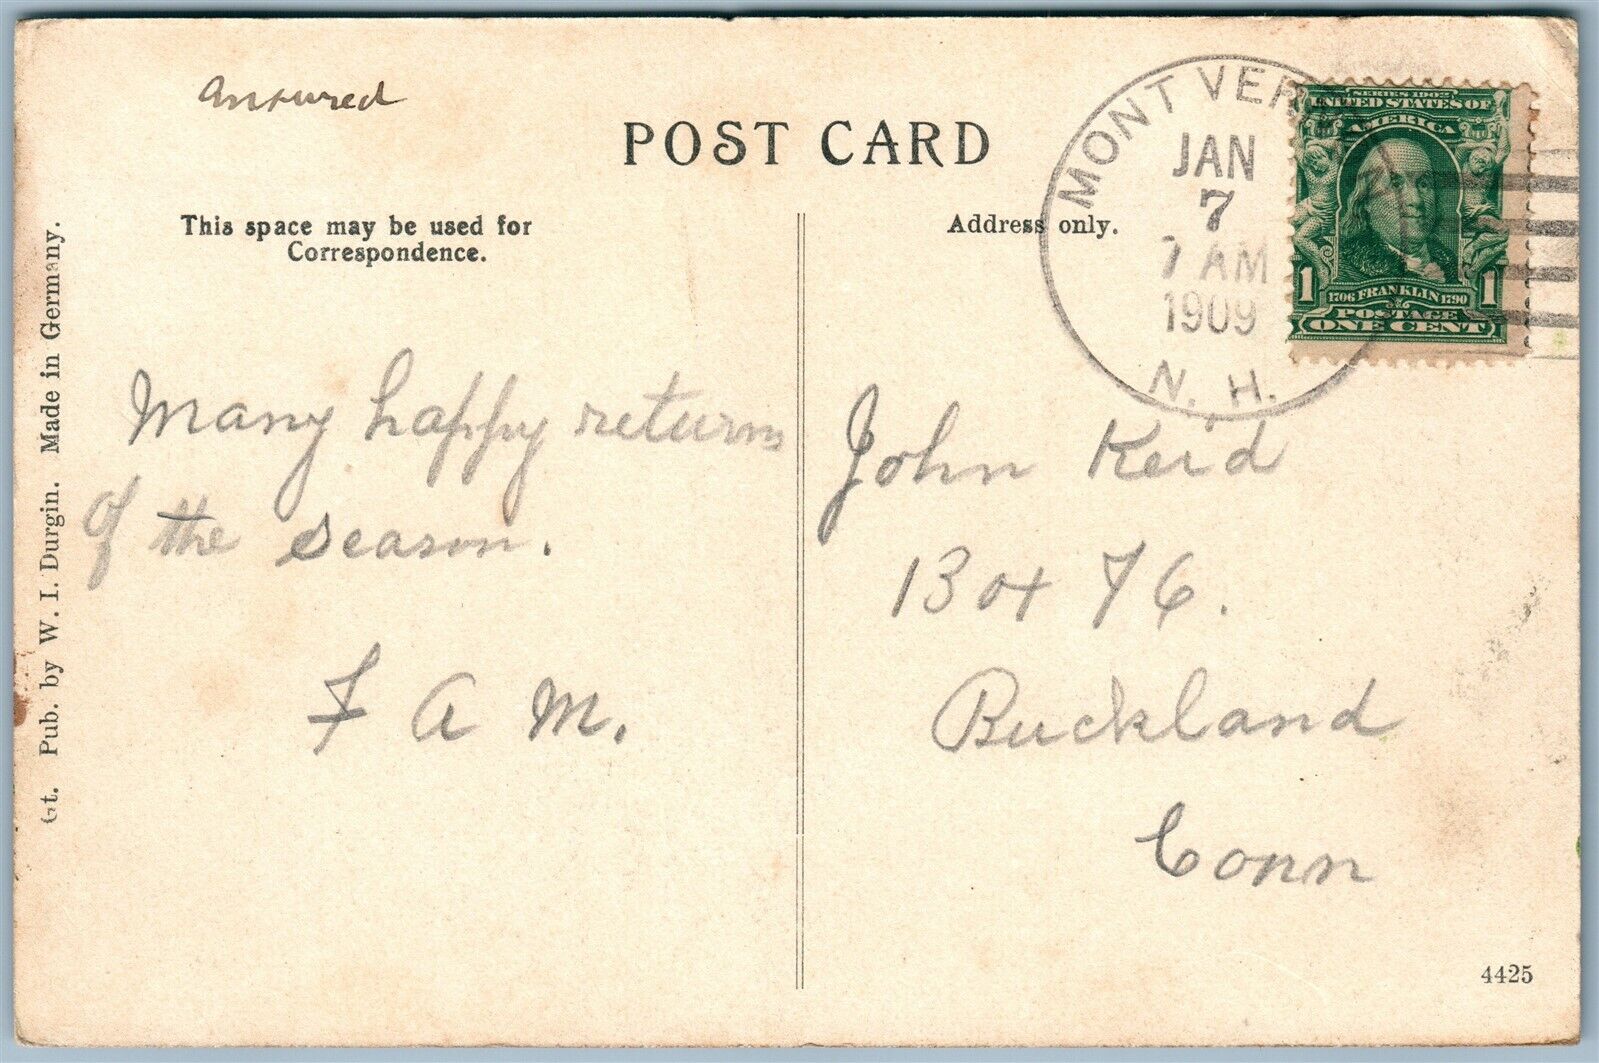 answered
POST CARD
This space may be used for
Correspondence.
Address only.
MONT VER
JAN
7
7 AM
1909
N. H.
SERIES 1902
UNITED STATES OF
AMERICA
1 1706 FRANKLIN 1790 1
POSTAGE
ONE CENT
Many happy returns
of the season.
F A M.
John Reid
Box 76.
Buckland
Conn
4425
Pub. by W. I. Durgin. Made in Germany.